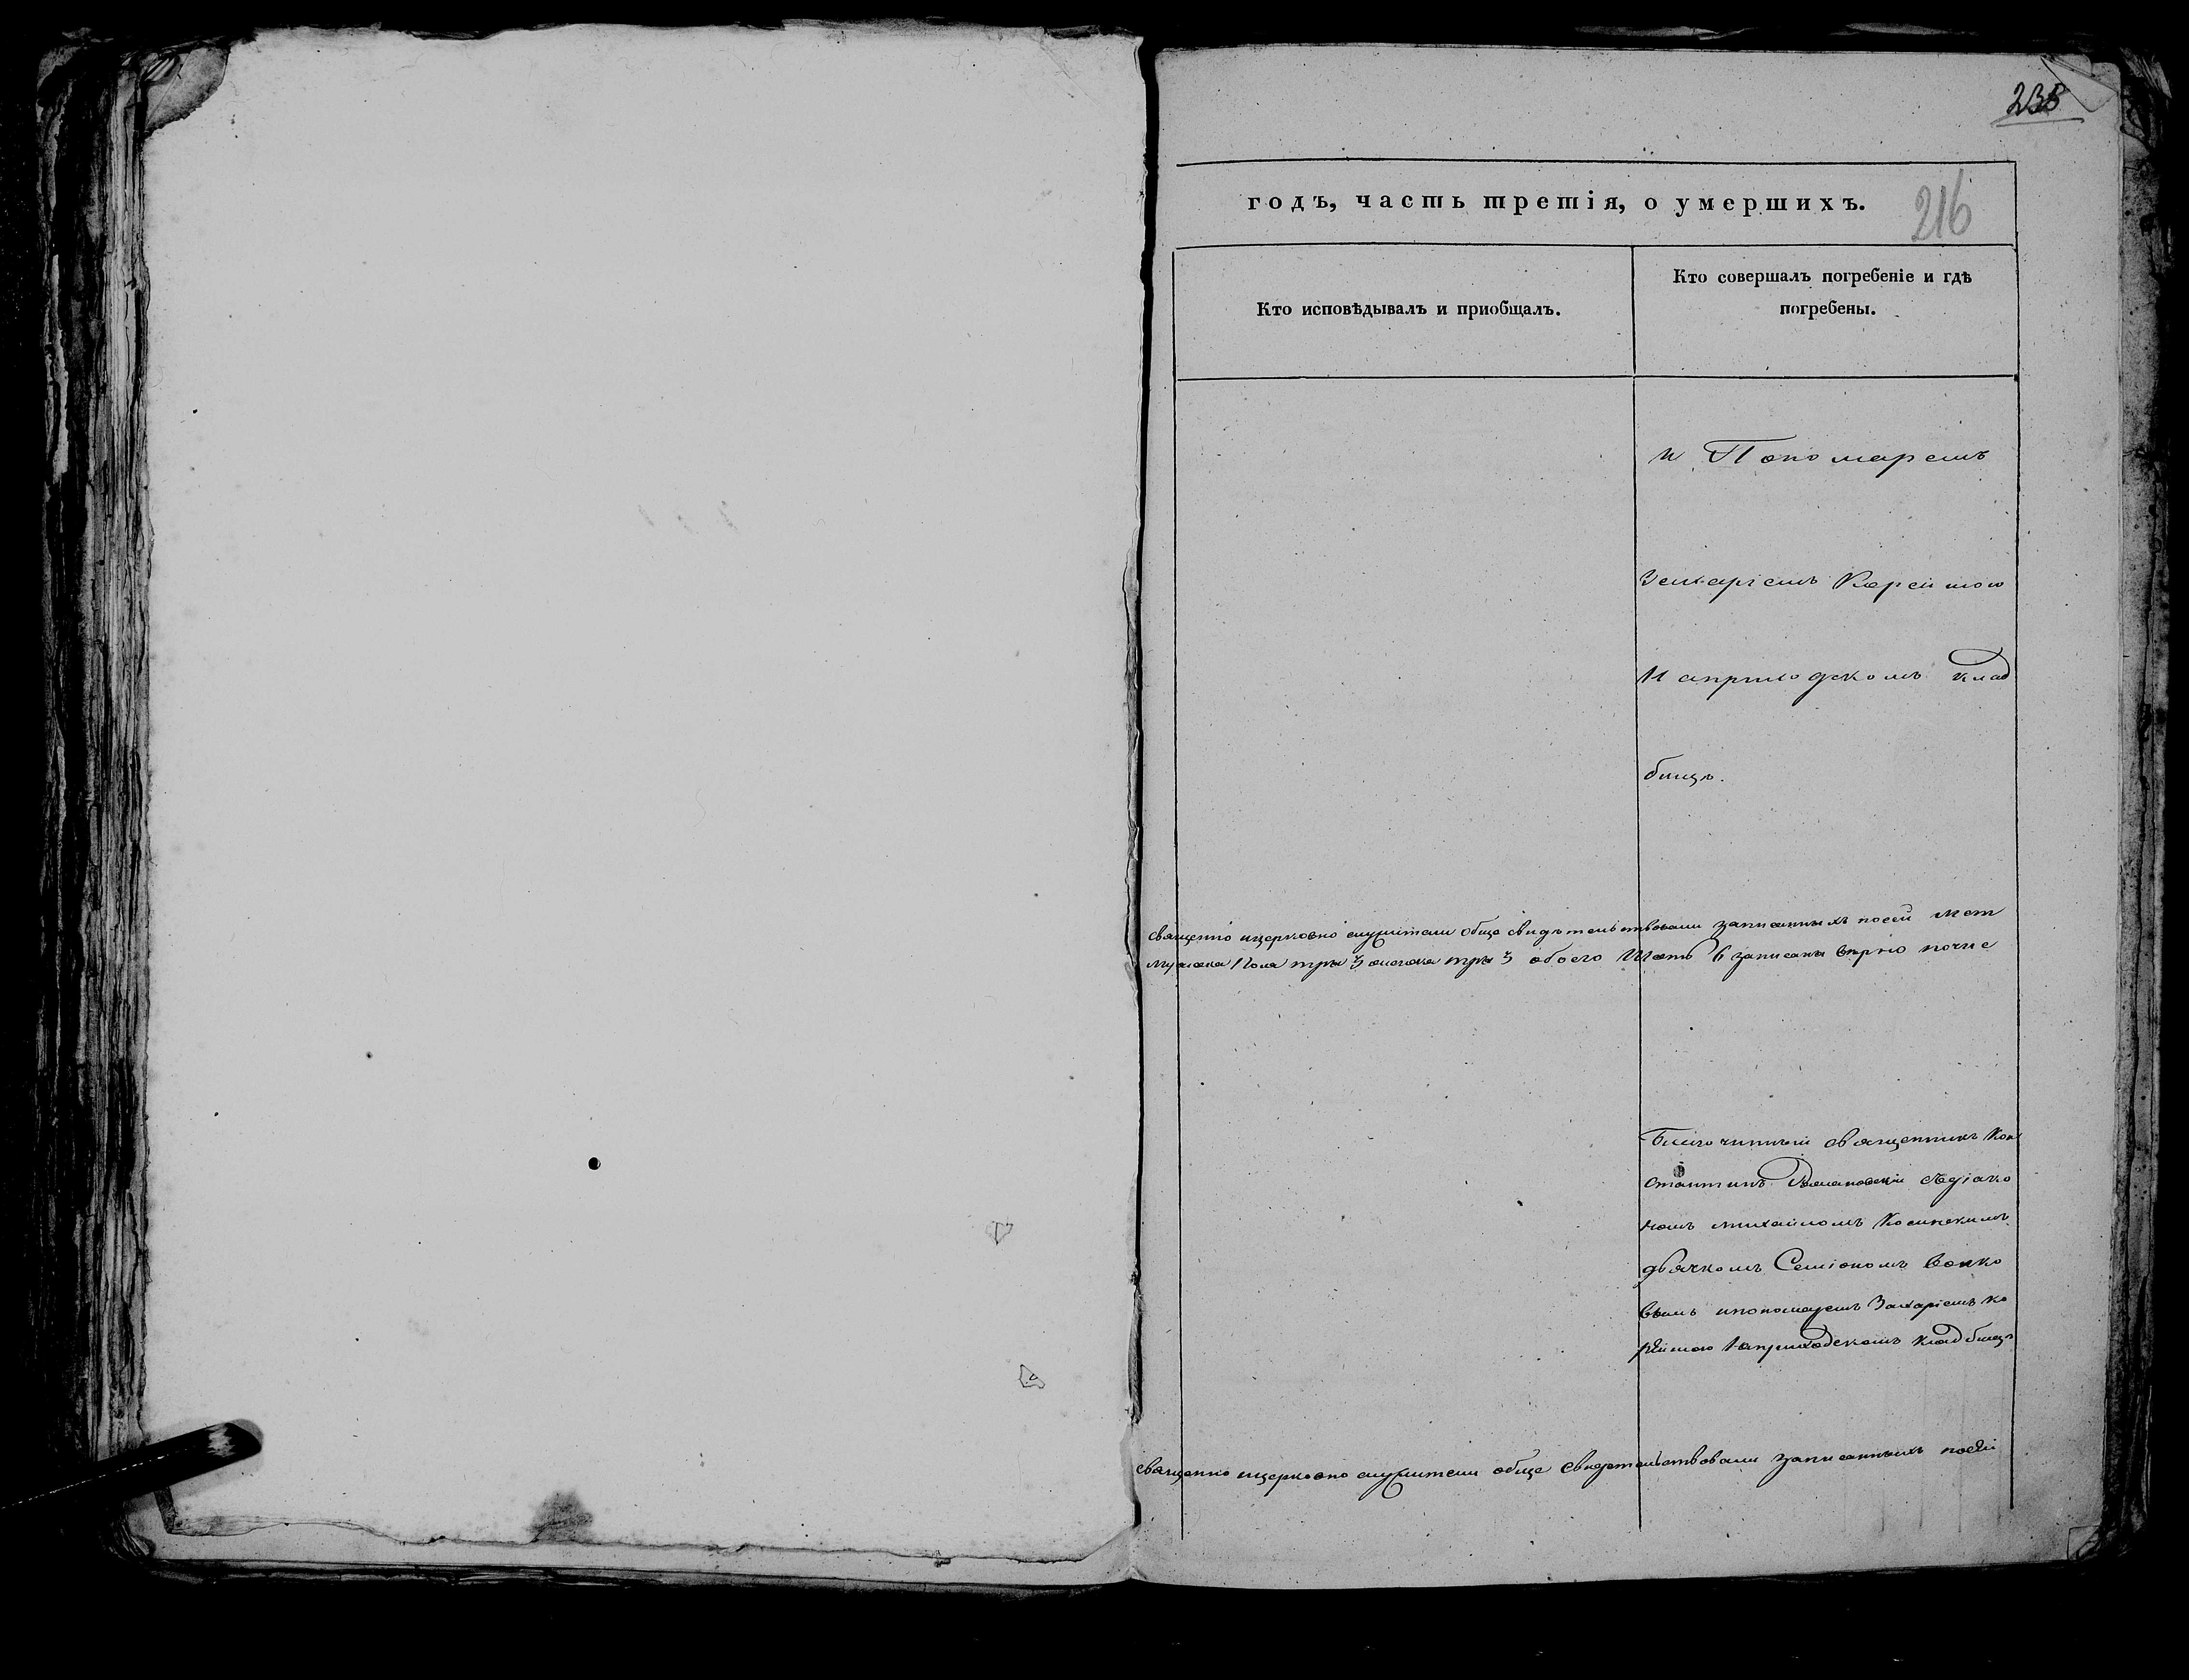 238
годъ, часть третія, о умершихъ.
216
Кто исповѣдывалъ и приобщалъ.
Кто совершалъ погребеніе и гдѣ
погребены.
и Пономаремъ
Захаріемъ Корейшою
На приходскомъ клад
бищѣ.
священно ицерковно служители обще свидѣтельствовали записанныхъ посей мет
мужска пола три 3 женска три 3 обоего Шесть 6 записаны вѣрно
Благочинный священникъ Кон
стантинъ Романовскій Съдіако
номъ михайломъ Косинскимъ
дьячкомъ Семіономъ Волко
вымъ ипономаремъ Захаріемъ ко
рейшою наприходскомъ кладбищѣ
священно ицерковно служители обще свидѣтельствовали записанныхъ посей